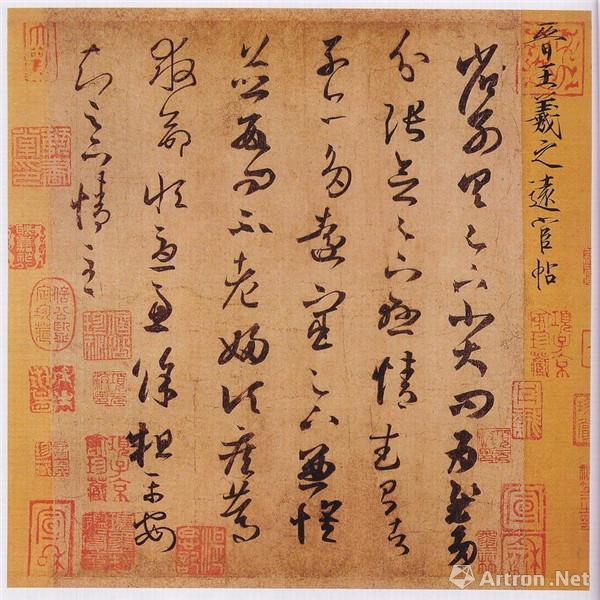 晉王羲之遠宦帖
省別具足下小大問為慰多
分張念足下懸情武昌諸
子亦多遠宦足下兼懷
並數問不老婦頃疾篤
救命恒憂慮餘粗平安
知足下情至
項子京家珍藏
項子京家珍藏
宣和
Artron.Net